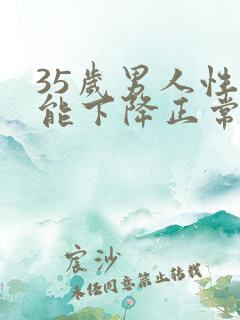 35歲男人性
能下降正常
宸沙
未经同意禁止转载